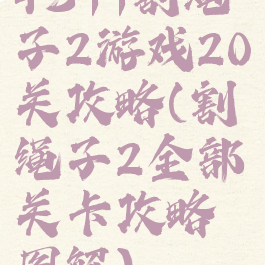 割绳
子2游戏20
关攻略(割
绳子2全部
关卡攻略
图解)